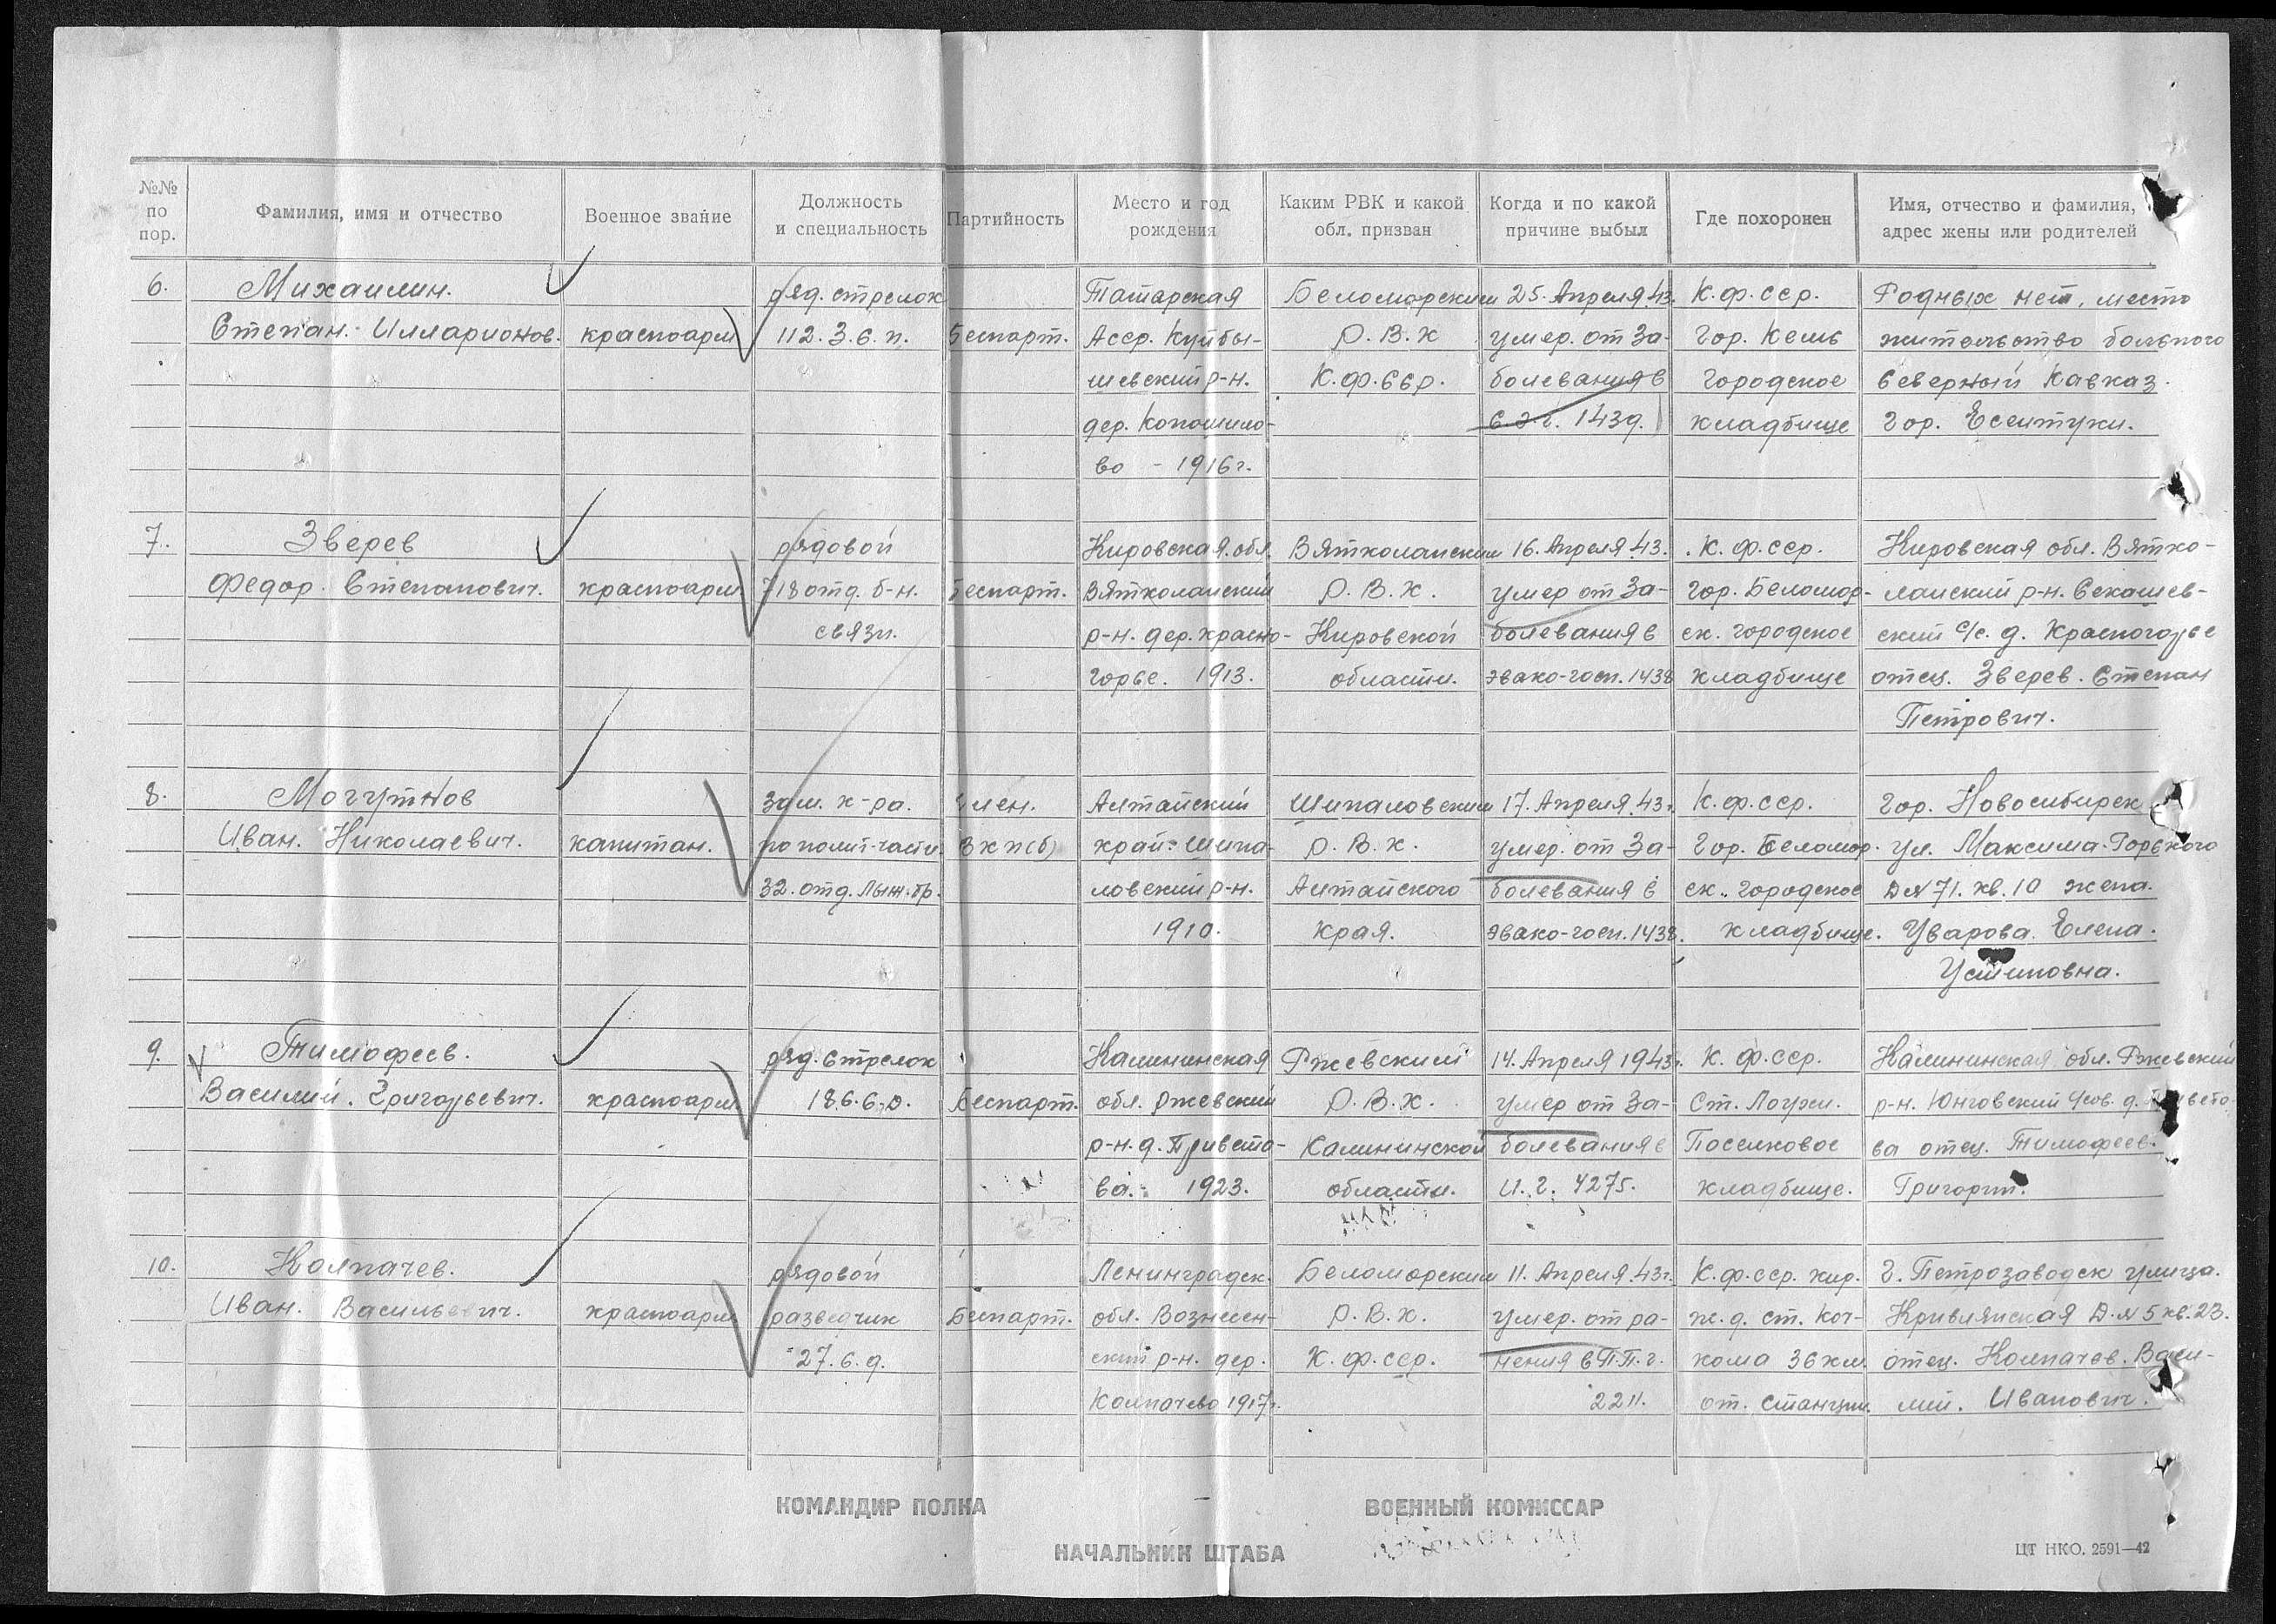 №№ по пор.
Фамилия, имя и отчество
Военное звание
Должность и специальность
Партийность
Место и год рождения
Каким РВК и какой обл. призван
Когда и по какой причине выбыл
Где похоронен
Имя, отчество и фамилия, адрес жены или родителей
6. Михаилин. ряд. стрелок Татарская Беломорским 25. Апреля 43. К.ф.сср. Родных нет, место
Степан. Илларионов. красноарм 112.З.б.п. Беспарт. Асср. Куйбы- Р.В.К умер. от За- гор. Кемь жительство больного
шевский р-н. К.ф.ССР. болевания в городское Северный Кавказ.
дер. Копошило- С.Э.г. 1439. кладбище гор. Есентуки.
во - 1916 г.
7. Зверев рядовой Кировская обл. Вятколанским 16. Апреля 43. К.ф.сср. Кировская обл. Вятко-
Федор. Степанович. красноарм. 718 отд. б-н. Беспарт. Вятколанский Р.В.К. умер от За- гор. Беломор- ланский р-н. Секашев-
связи. р-н. дер. Красно- Кировской болевания в ск. городское ский с/с. д. Красногорье
горье. 1913. области. эвако-госп. 1438 кладбище отец. Зверев. Степан
Петрович.
8. Могутнов зам. к-ра. Член. Алтайский Шипаловским 17. Апреля 43 г. К.ф.сср. гор. Новосибирск
Иван. Николаевич. капитан. по полит-части. ВКП(б) край. Шипа- Р.В.К. умер. от За- гор. Беломор. ул. Максима-Горького
32. отд. Лыж. бр. ловский р-н. Алтайского болевания в ск. городское Д № 71. кв. 10 жена.
1910. края. эвако-госп. 1438. кладбище. Уварова. Елена.
Устиновна.
9. Тимофеев. ряд. Стрелок Калининская Ржевский 14. Апреля 1943 г. К.ф.сср. Калининская обл. Ржевский
Василий. Григорьевич. красноарм 186.С.Д. Беспарт. обл. Ржевский Р.В.К. умер от За- Ст. Лоухи. р-н. Юнговский с/сов. д.
р-н. д. Привето- Калининской болевания в Поселковое ва отец. Тимофеев.
ва. 1923. области. И.г. 4275. кладбище. Григорий.
10. Колпачев. рядовой Ленинградск. Беломорским 11. Апреля 43 г. К.ф.сср. кир. г. Петрозаводск улица.
Иван. Васильевич. красноарм разведчик Беспарт. обл. Вознесен- Р.В.К. умер. от ра- ж.д. ст. Коч- Кривлянская Д. № 5 кв. 23.
27.С.д. ский р-н. дер. К.ф.сср. нения в П.П.г. кома 36 км. отец. Колпачев. Васи-
Колпачево 1917 г. 2211. от. станции лий. Иванович.
КОМАНДИР ПОЛКА
ВОЕННЫЙ КОМИССАР
НАЧАЛЬНИК ШТАБА
ЦТ НКО. 2591—42